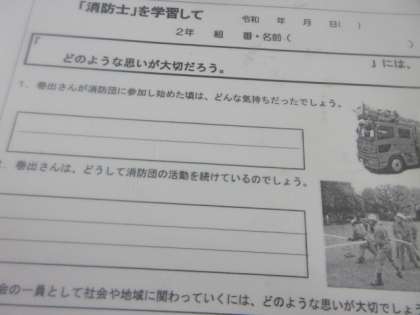 「消防士」を学習して
令和　　年　　月　　日（　　）
2年　　組　　番・名前（　　　　　　　　）
「　　　　　　　　　　　　　　　　」には、
どのような思いが大切だろう。
1．巻出さんが消防団に参加し始めた頃は、どんな気持ちだったでしょう。
巻出さんは、どうして消防団の活動を続けているのでしょう。
会の一員として社会や地域に関わっていくには、どのような思いが大切でしょう